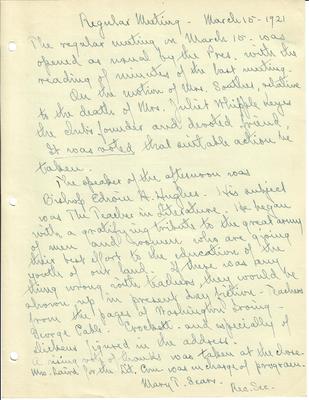 Regular Meeting - March 15 - 1921
The regular meeting on March 15 - was
opened as usual by the Pres. with the
reading of minutes of the last meeting.
On the motion of Mrs. Souther, relative
to the death of Mrs. Juliet Whipple Keyes
the club's founder and devoted friend,
It was voted that suitable action be
taken.
The speaker of the afternoon was
Bishop Edwin H. Hughes. His subject
was The Teacher in Literature. He began
with a gratifying tribute to the great army
of men and women who are giving
their best effort to the education of the
youth of our land. If there was any
thing wrong with teachers they would be
shown up in present day fiction. Teachers
from the pages of Washington Irving -
George Cable - Crockett - and especially of
Dickens figured in the address.
A rising vote of thanks was taken at the close.
Mrs. Laird for the Lit. Com was in charge of program.
Mary T. Sears. Rec. Sec.